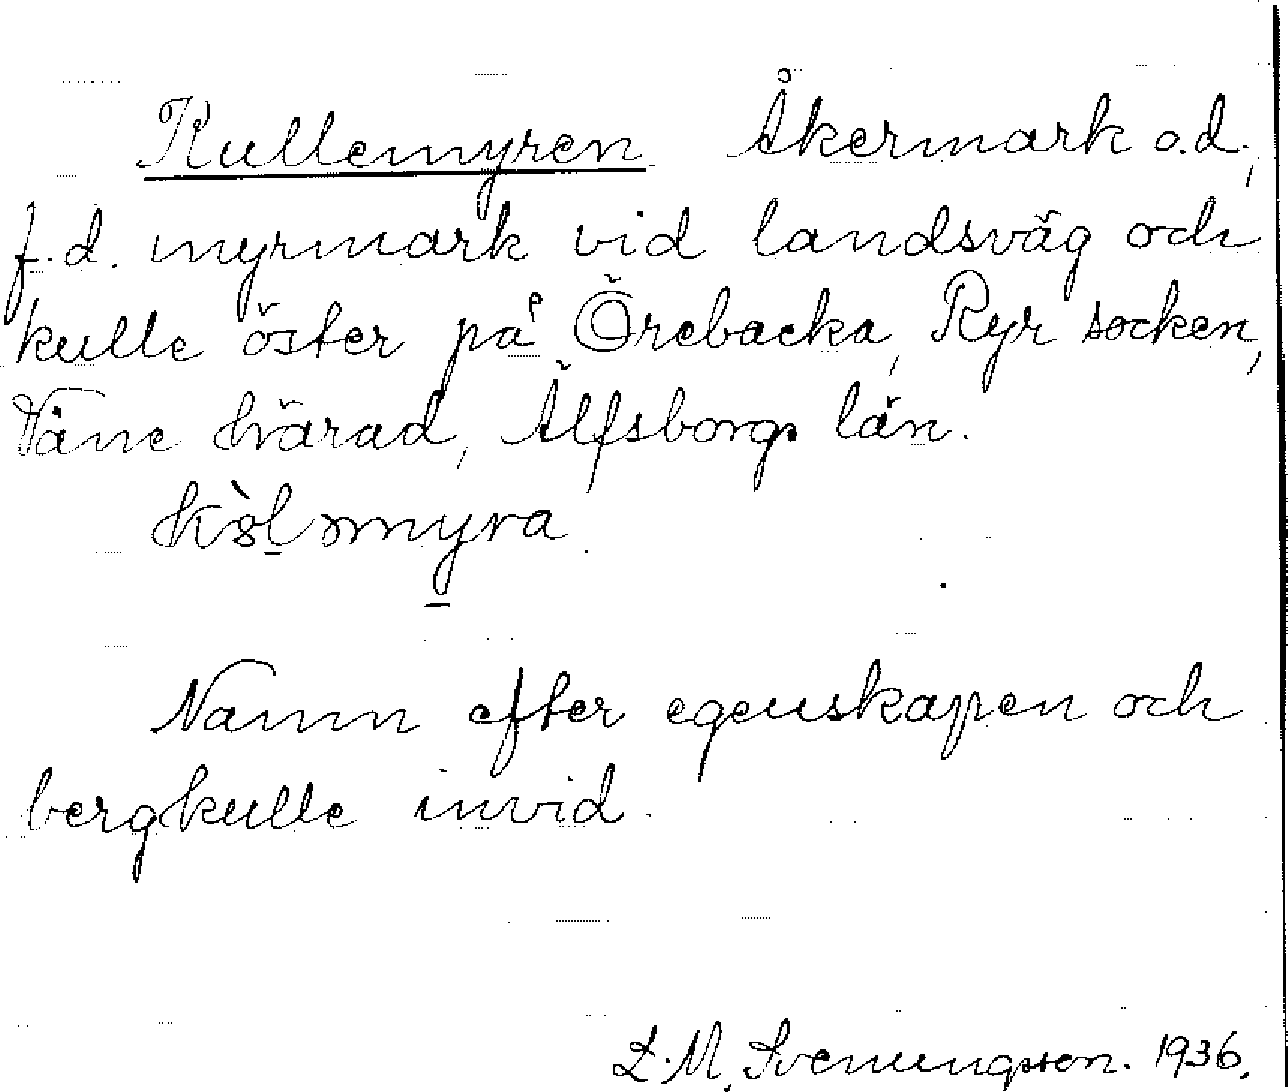 Kullemyren Åkermark o.d.,
f.d. myrmark vid landsväg och
kulle öster på Örebacka, Ryr socken,
Väne härad, Älfsborgs län.
Namn efter egenskapen och
bergkulle invid.
L.M. Svenungsson. 1936.